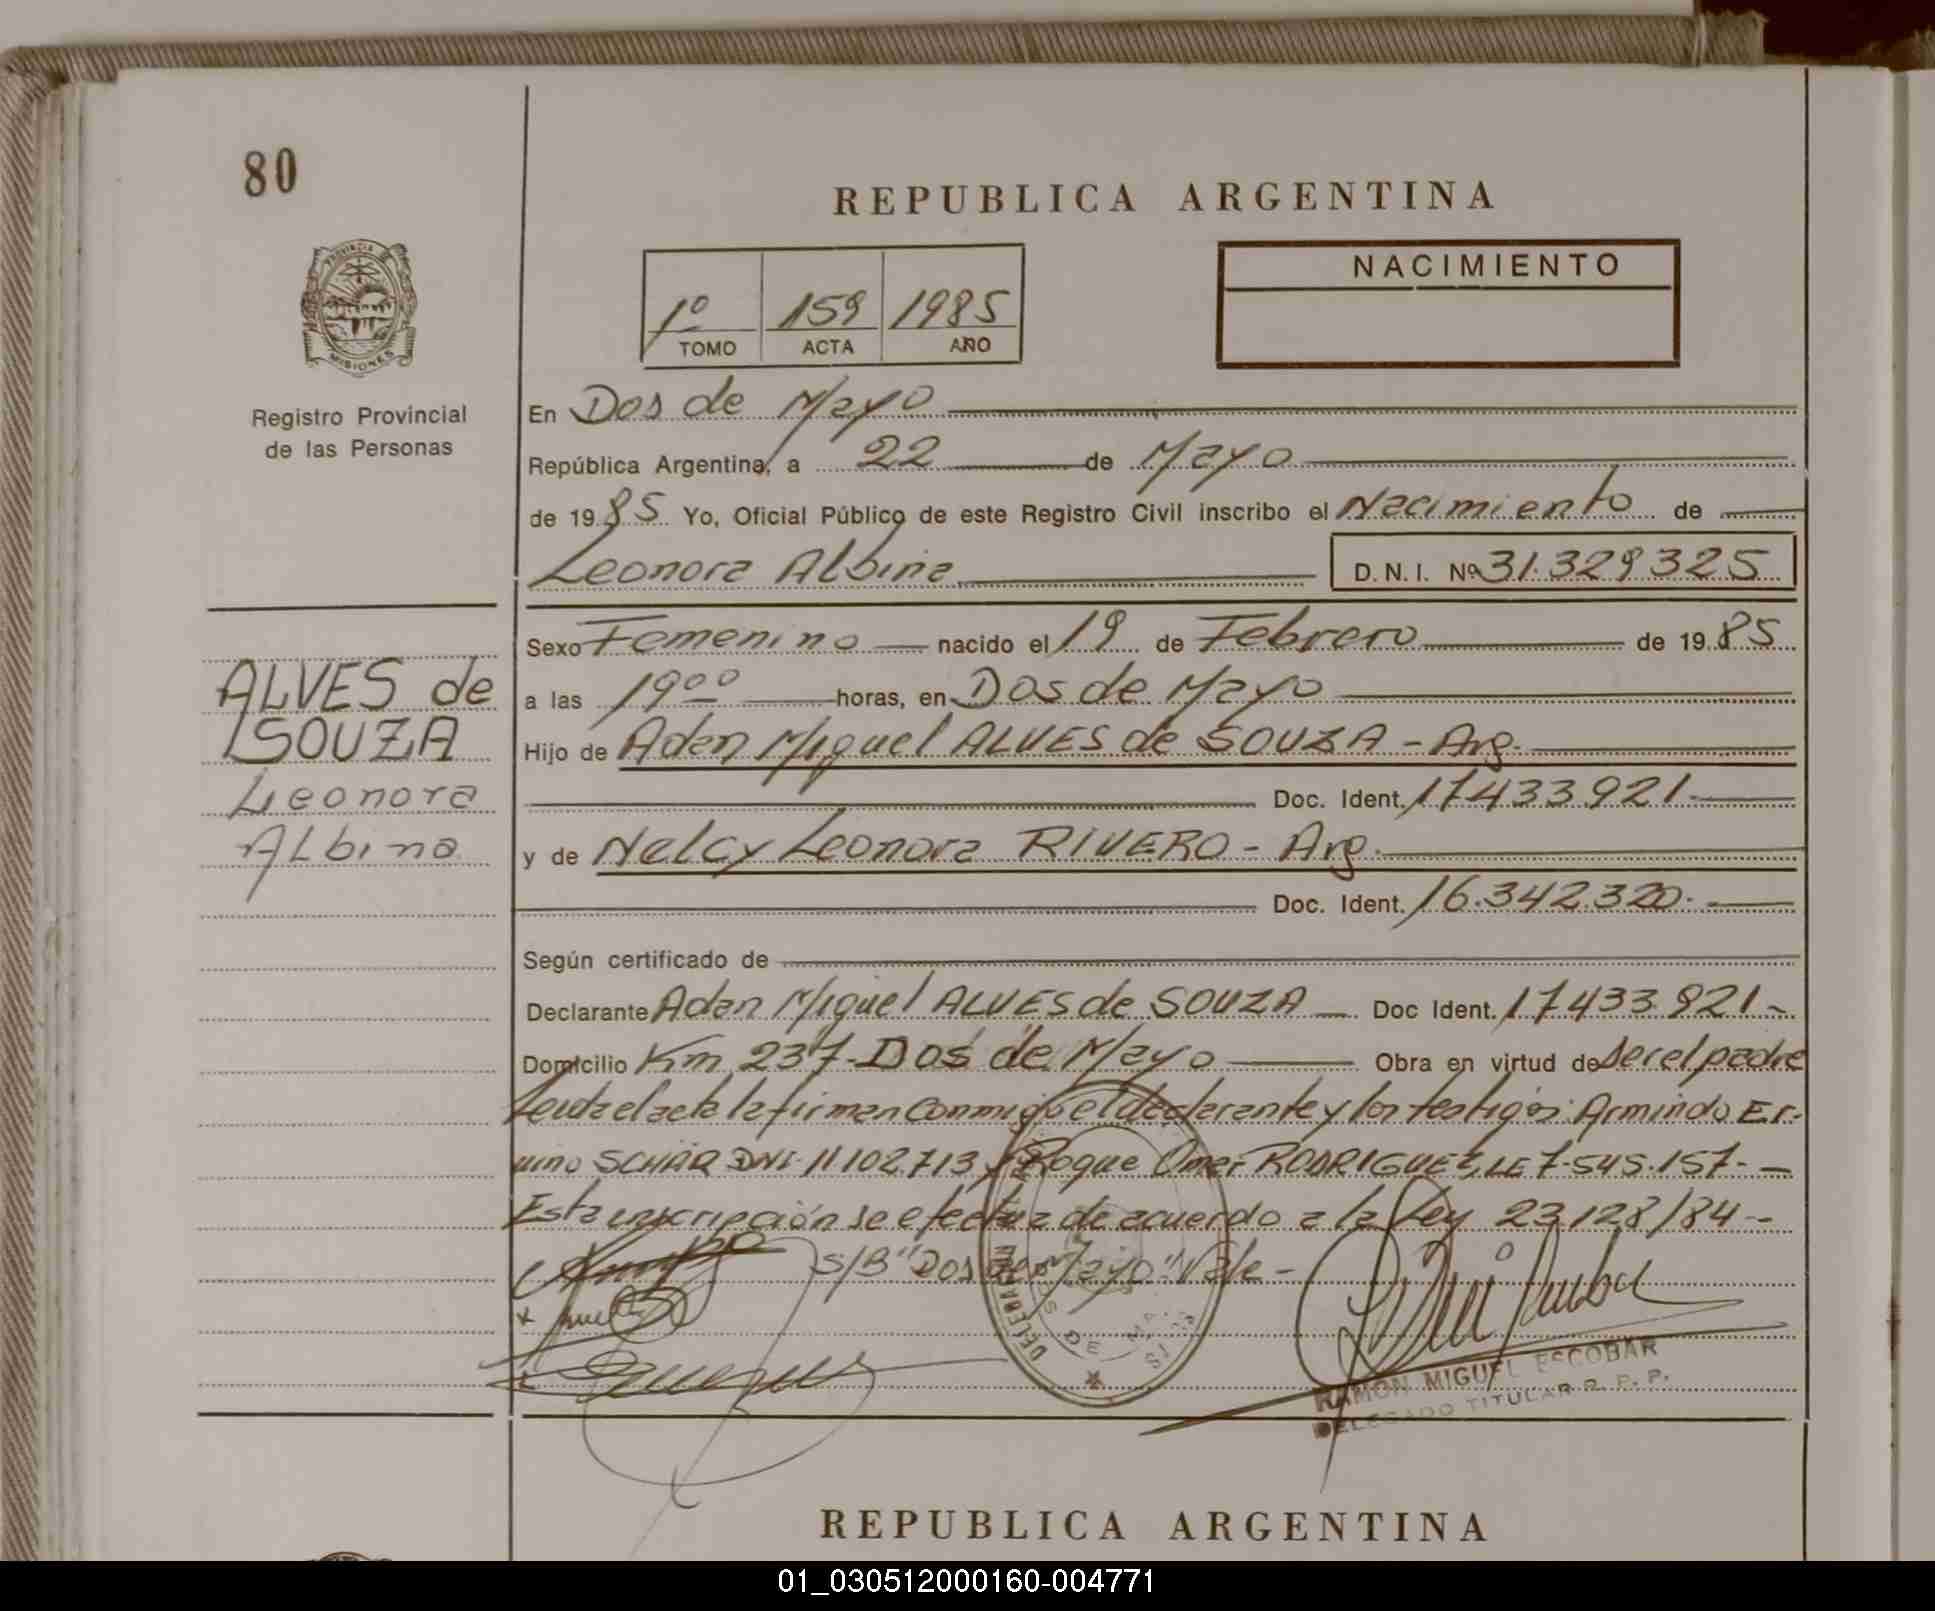 80
REPUBLICA ARGENTINA
PROVINCIA DE
MISIONES
NACIMIENTO
1º 159 1985
TOMO ACTA AÑO
Registro Provincial
de las Personas
En Dos de Mayo
República Argentina, a 22 de Mayo
de 1985 Yo, Oficial Público de este Registro Civil inscribo el Nacimiento de
Leonora Albina D.N.I. Nº 31.329325
ALVES de
SOUZA
Leonora
Albina
Sexo Femenino nacido el 19 de Febrero de 1985
a las 19⁰⁰ horas, en Dos de Mayo
Hijo de Adan Miguel ALVES de SOUZA - Arg.
Doc. Ident. 17433.921-
y de Nelcy Leonora RIVERO - Arg.
Doc. Ident. 16.342.320.
Según certificado de
Declarante Adan Miguel ALVES de SOUZA Doc Ident. 17433.921-
Domicilio Km 237-Dos de Mayo Obra en virtud de ser el padre
Leida el acta la firman conmigo el declarante y los testigos: Armindo Er-
vino SCHAR DNI. 11102.713 y Roque Omar RODRIGUEZ, LE 7.545.157-
Esta inscripción se efectua de acuerdo a la Ley 23128/84-
S/B "Dos de Mayo" Vale-
RAMON MIGUEL ESCOBAR
DELEGADO TITULAR R. P. P.
REPUBLICA ARGENTINA
01_030512000160-004771